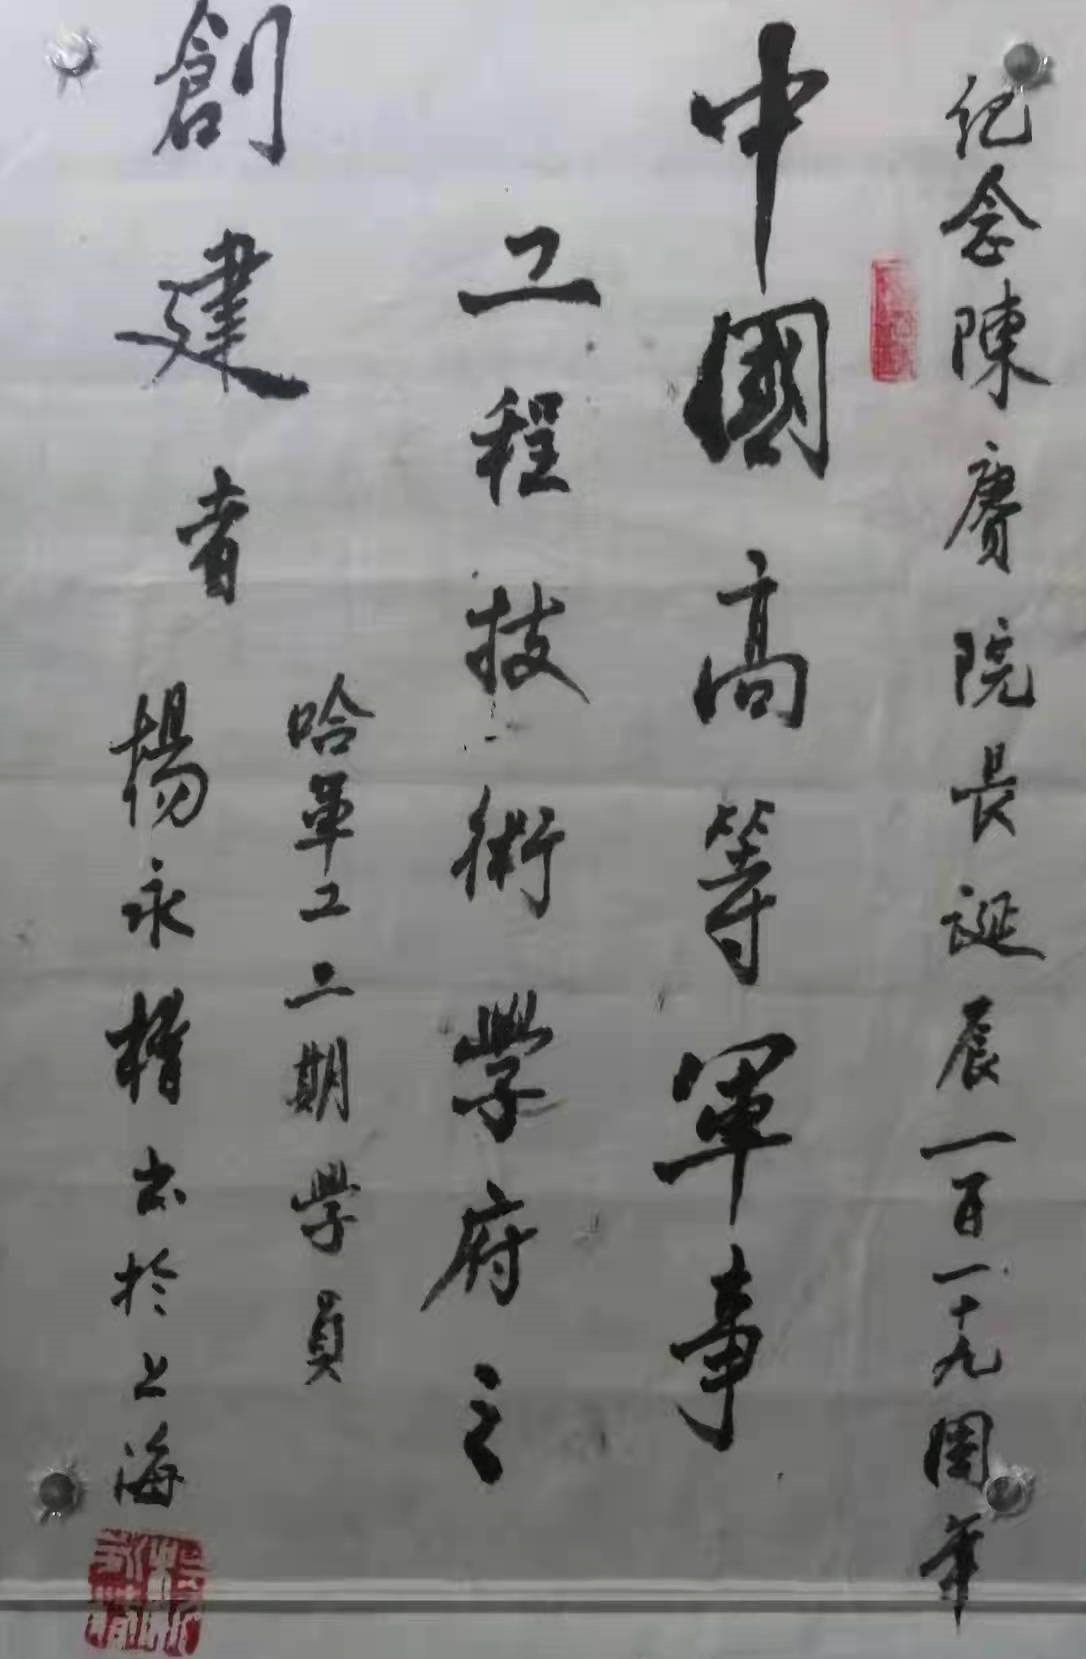 纪念陳賡院長誕辰一百一十九周年
中國高等軍事
工程技術學府之
創建者
哈軍工二期學員
楊永楷书於上海